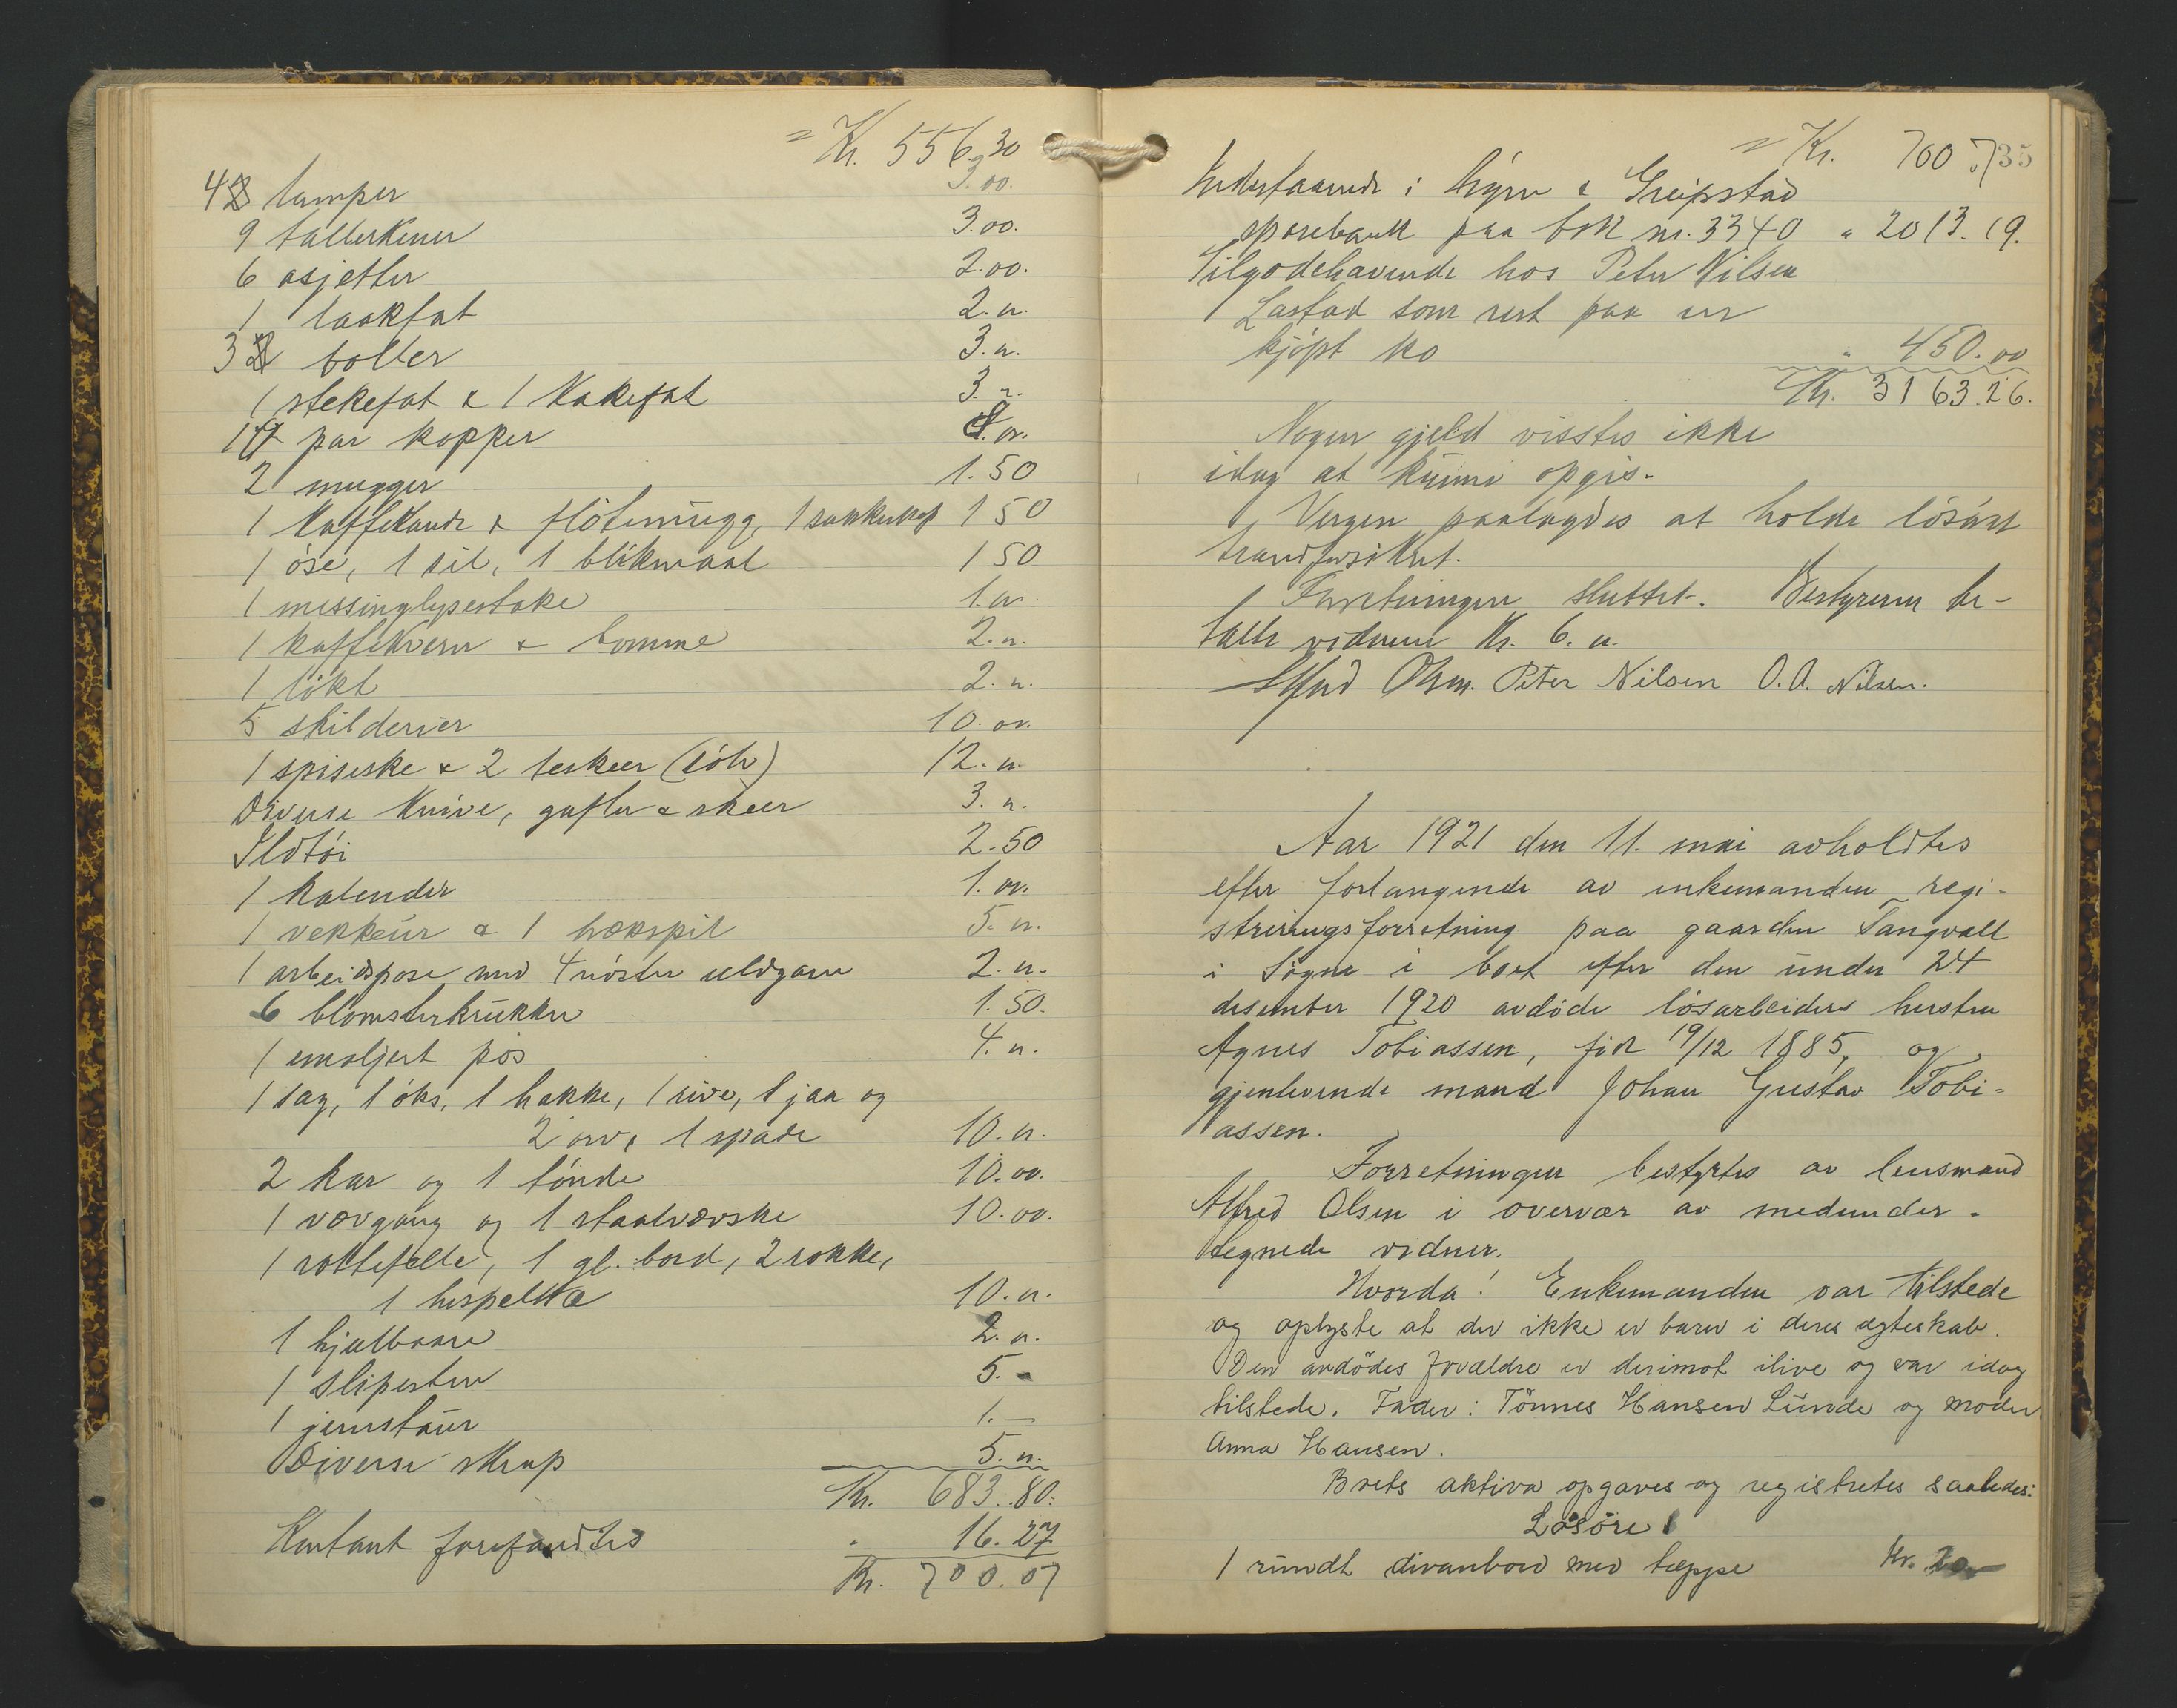 = Kr. 556.30
4 lamper 3.00.
9 tallerkener 3.00.
6 asjetter 2.00.
1 laakfat 2. "
3 boller 3. "
1 stekefat & 1 Kakefat 3. "
par kopper
2 mugger 1.50
1 Kaffekande & flötemugg, 1 sukkerkop 1 50
1 öse, 1 sil, 1 blikmaal 1 50
1 messinglysestake 1.00
1 kaffekvern & bomme 2. "
1 lökt 2. "
5 skilderier 10.00.
1 spiseske & 2 teskeer (sölv) 12. "
Diverse Knive, gafler & skeer 3. "
Ildtöi 2.50
1 kalender 1.00.
1 vekkeur & 1 5. "
1 arbeidspose med 4 nöster uldgarn 2. "
6 blomsterkrukker 1.50.
1 emaljert pös 4. "
1 sag, 1 öks, 1 hakke, 1 rive, 1 jaa og
2 orv, 1 spade 10. "
2 kar og 1 tönde 10.00.
1 vævgang og 1 staalvævske 10.00.
1 rottefelle, 1 gl. bord, 2 rokke,
1 hespeltræ 10. "
1 hjulbaare 2. "
1 slipesten 5. "
1 jernstaur 1.—
Diverse skrap 5. "
Kr. 683.80.
Kontant forefandtes " 16.27
Kr. 700.07
= Kr. 700.07 35
Indestaaende i Søgne & Greipstad
sparebank paa bok nr. 3340 " 2013.19.
Tilgodehavende hos Peter Nilsen
Lastad som rest paa en
kjöpt ko " 450.00
Kr. 3163.26.
Nogen gjeld visstes ikke
idag at kunne opgis.
Vergen paalagdes at holde lösöret
brandforsikret.
Forretningen sluttet. Bestyreren be-
talte vidnene Kr. 6. "
Alfred Olsen. Peter Nilsen O. A. Nilsen.
Aar 1921 den 11. mai avholdtes
efter forlangende av enkemanden regi-
streringsforretning paa gaarden Tangvall
i Søgne i boet efter den under 24
desember 1920 avdöde lösarbeiders hustru
Agnes Tobiassen, född 19/12 1885, og
gjenlevende mand Johan Gustav Tobi-
assen.
Forretningen bestyrtes av lensmand
Alfred Olsen i overvær av medunder-
tegnede vidner.
Hvorda! Enkemanden var tilstede
og oplyste at der ikke er barn i deres egteskab.
Den avdödes forældre er derimot ilive og var idag
tilstede. Fader: Tönnes Hansen Lunde og moder
Anna Hansen.
Boets aktiva opgaves og registrertes saaledes:
Lösöre
1 rundt divanbord med teppe Kr. 20.—